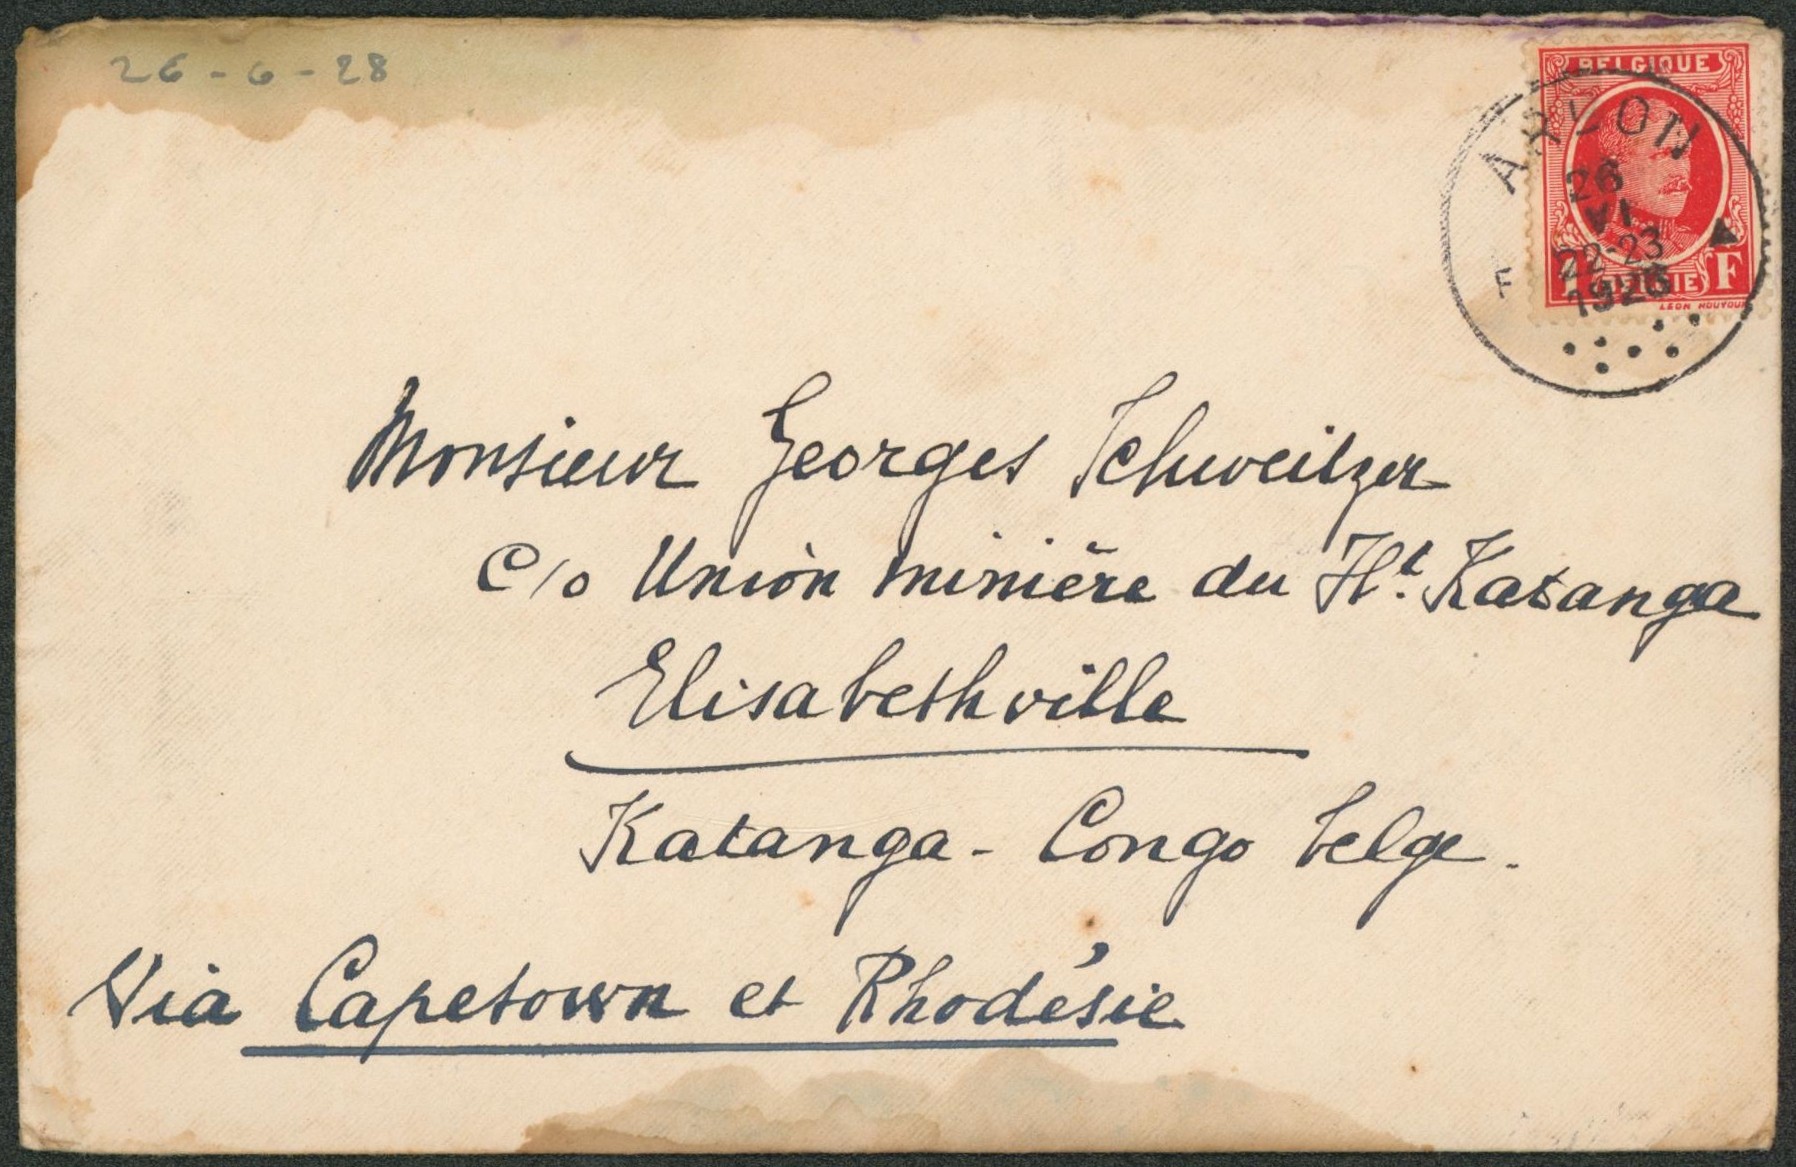 26-6-28
BELGIQUE
ARLON
26
VI
22-23
1928
F
BELGIE F
Monsieur Georges Schweitzer
C/o Union minière du Ht. Katanga
Elisabethville
Katanga - Congo belge.
Via Capetown et Rhodésie